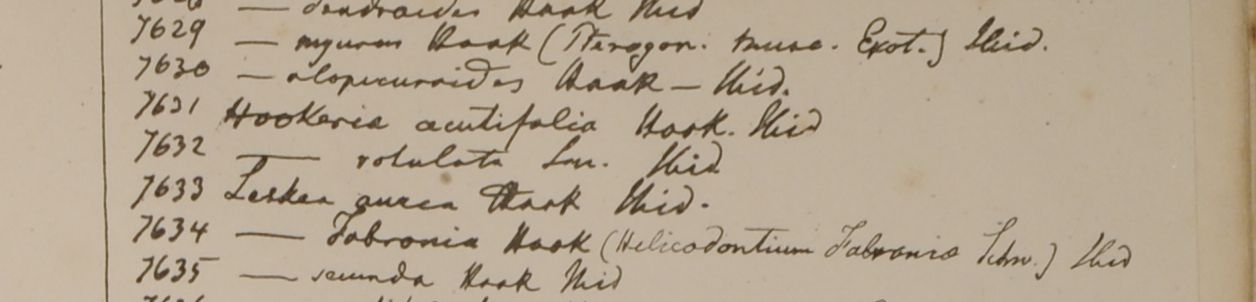 — dendroides Hook Ibid
7629 — myurum Hook (Pterogon. Musc. Exot.) Ibid.
7630 — alopecuroides Hook — Ibid.
7631 Hookeria acutifolia Hook. Ibid
7632 —— rotulata Sm. Ibid
7633 Leskea aurea Hook Ibid.
7634 —— Fabronia Hook (Helicodontium Fabronia Schw.) Ibid
7635 —— secunda Hook Ibid